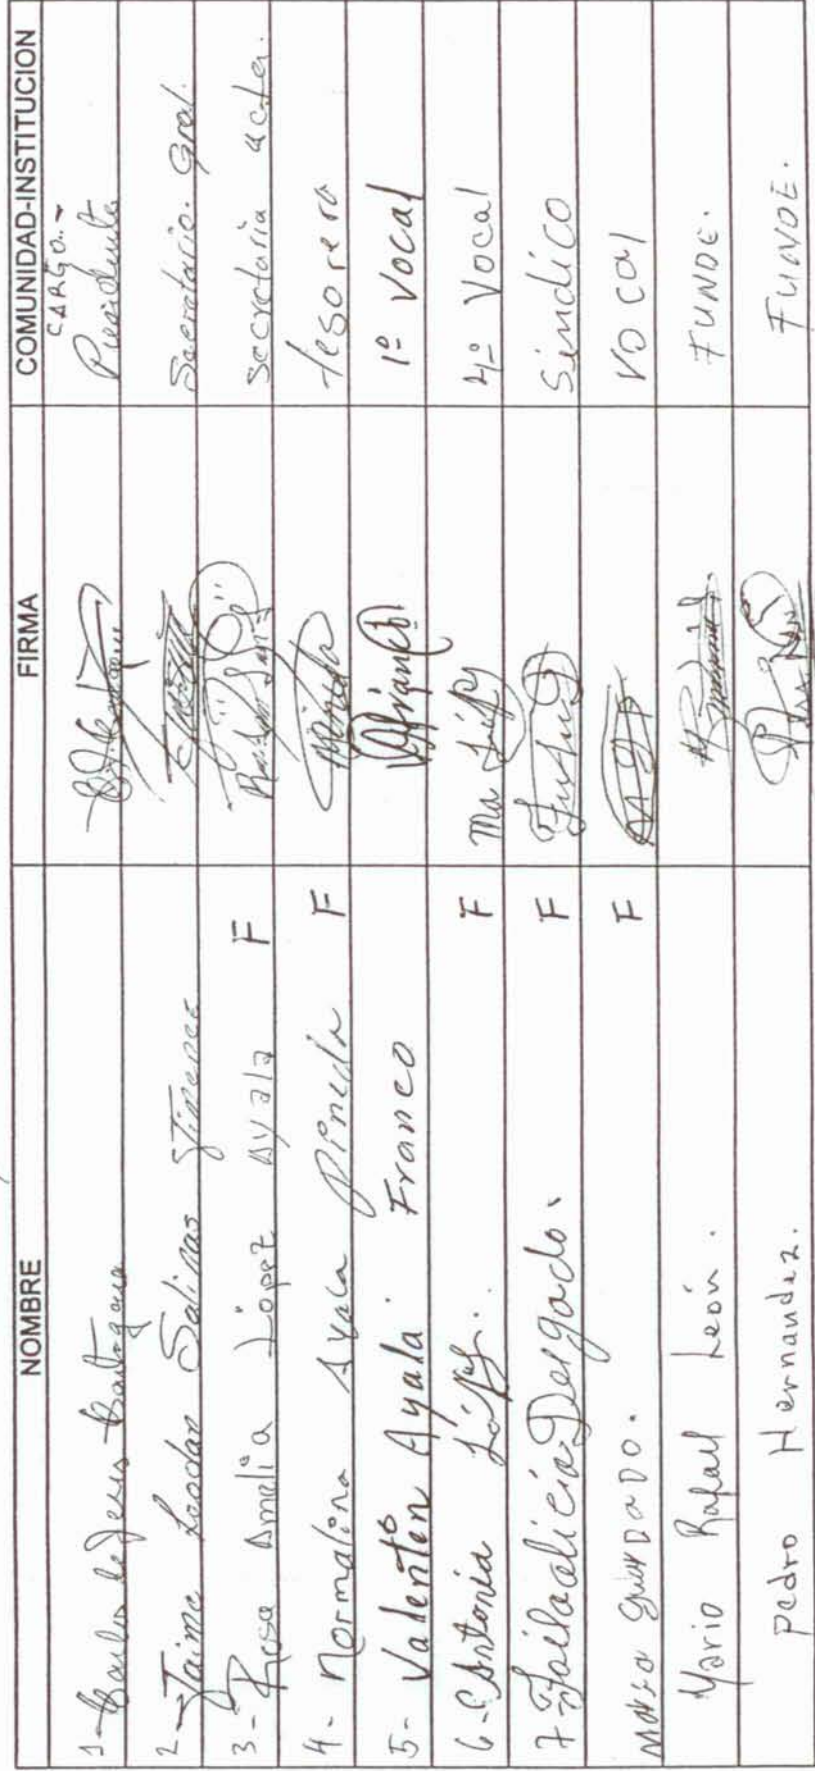 NOMBRE FIRMA COMUNIDAD-INSTITUCION
CARGO.-
1- Carlos de Jesus Cartagena Presidente
2- Jaime Salinas Secretario. Gral.
3- Rosa Amelia López Ayala F secretaria acta.
4- Normalina Ayala Pineda F tesorera
5- Valentín Ayala Franco 1º Vocal
6- Antonia López. F Ma López 4º Vocal
7- Delgado. F Sindico
F Vocal
Mario Rafael León. FUNDE.
Pedro Hernandez. FUNDE.